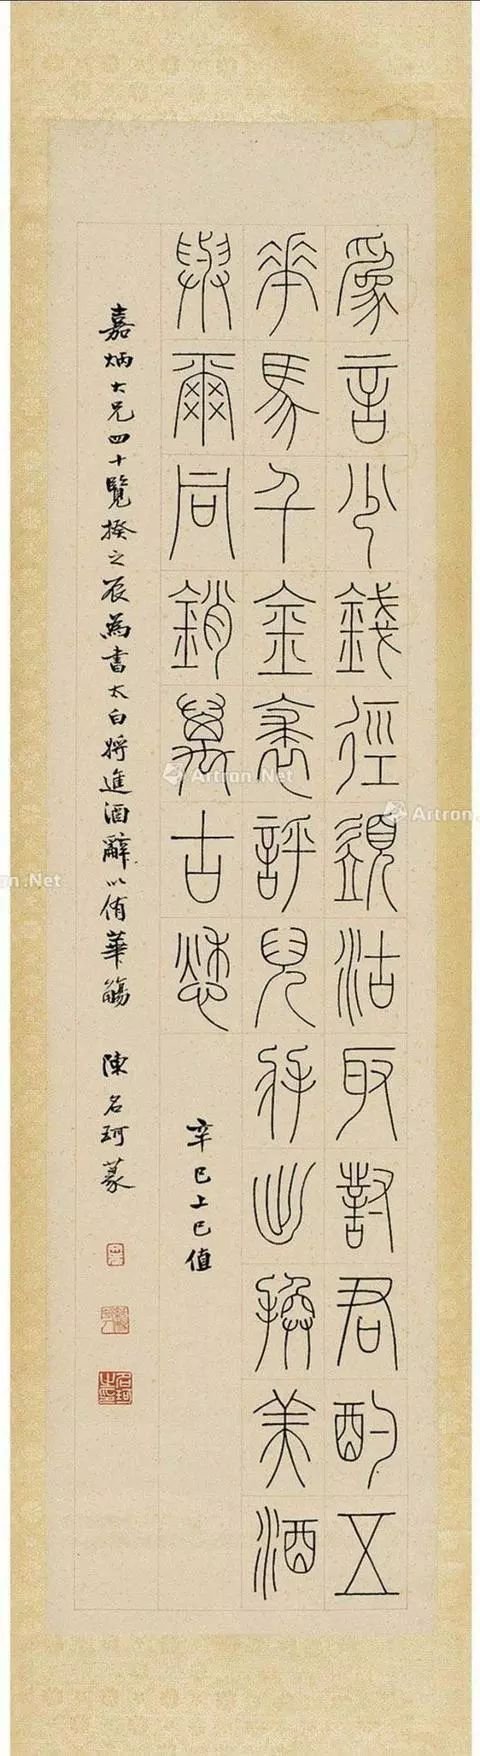 為言少錢徑須沽取對君酌五
花馬千金裘呼兒將出換美酒
與爾同銷萬古愁 辛巳上巳值
嘉炳大兄四十覽揆之辰為書太白將進酒辭以侑華觴 陳名珂篆
Artron.Net
Artron.Net
on.Net